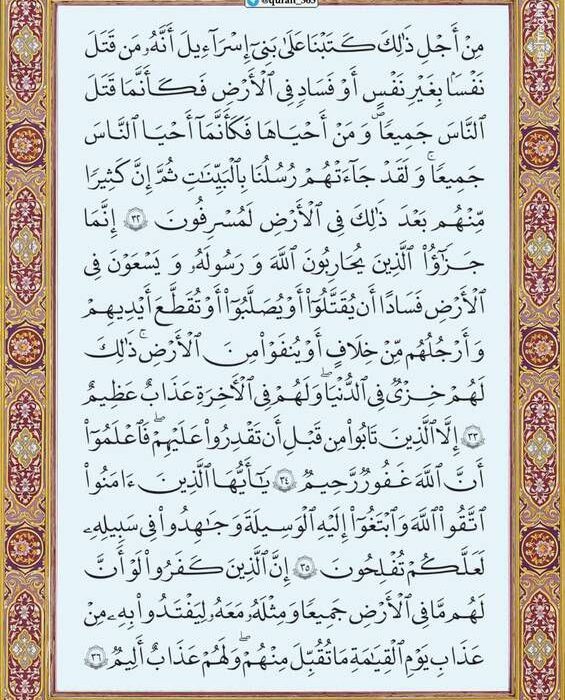 @quran_365
مِنْ أَجْلِ ذَٰلِكَ كَتَبْنَا عَلَىٰ بَنِىٓ إِسْرَآءِيلَ أَنَّهُۥ مَن قَتَلَ
نَفْسًۢا بِغَيْرِ نَفْسٍ أَوْ فَسَادٍ فِى ٱلْأَرْضِ فَكَأَنَّمَا قَتَلَ
ٱلنَّاسَ جَمِيعًا وَمَنْ أَحْيَاهَا فَكَأَنَّمَآ أَحْيَا ٱلنَّاسَ
جَمِيعًا ۚ وَلَقَدْ جَآءَتْهُمْ رُسُلُنَا بِٱلْبَيِّنَٰتِ ثُمَّ إِنَّ كَثِيرًا
مِّنْهُم بَعْدَ ذَٰلِكَ فِى ٱلْأَرْضِ لَمُسْرِفُونَ ٣٢ إِنَّمَا
جَزَٰٓؤُا۟ ٱلَّذِينَ يُحَارِبُونَ ٱللَّهَ وَرَسُولَهُۥ وَيَسْعَوْنَ فِى
ٱلْأَرْضِ فَسَادًا أَن يُقَتَّلُوٓا۟ أَوْ يُصَلَّبُوٓا۟ أَوْ تُقَطَّعَ أَيْدِيهِمْ
وَأَرْجُلُهُم مِّنْ خِلَٰفٍ أَوْ يُنفَوْا۟ مِنَ ٱلْأَرْضِ ۚ ذَٰلِكَ
لَهُمْ خِزْىٌ فِى ٱلدُّنْيَا ۖ وَلَهُمْ فِى ٱلْءَاخِرَةِ عَذَابٌ عَظِيمٌ
٣٣ إِلَّا ٱلَّذِينَ تَابُوا۟ مِن قَبْلِ أَن تَقْدِرُوا۟ عَلَيْهِمْ ۖ فَٱعْلَمُوٓا۟
أَنَّ ٱللَّهَ غَفُورٌ رَّحِيمٌ ٣٤ يَٰٓأَيُّهَا ٱلَّذِينَ ءَامَنُوا۟
ٱتَّقُوا۟ ٱللَّهَ وَٱبْتَغُوٓا۟ إِلَيْهِ ٱلْوَسِيلَةَ وَجَٰهِدُوا۟ فِى سَبِيلِهِۦ
لَعَلَّكُمْ تُفْلِحُونَ ٣٥ إِنَّ ٱلَّذِينَ كَفَرُوا۟ لَوْ أَنَّ
لَهُم مَّا فِى ٱلْأَرْضِ جَمِيعًا وَمِثْلَهُۥ مَعَهُۥ لِيَفْتَدُوا۟ بِهِۦ مِنْ
عَذَابِ يَوْمِ ٱلْقِيَٰمَةِ مَا تُقُبِّلَ مِنْهُمْ ۖ وَلَهُمْ عَذَابٌ أَلِيمٌ ٣٦